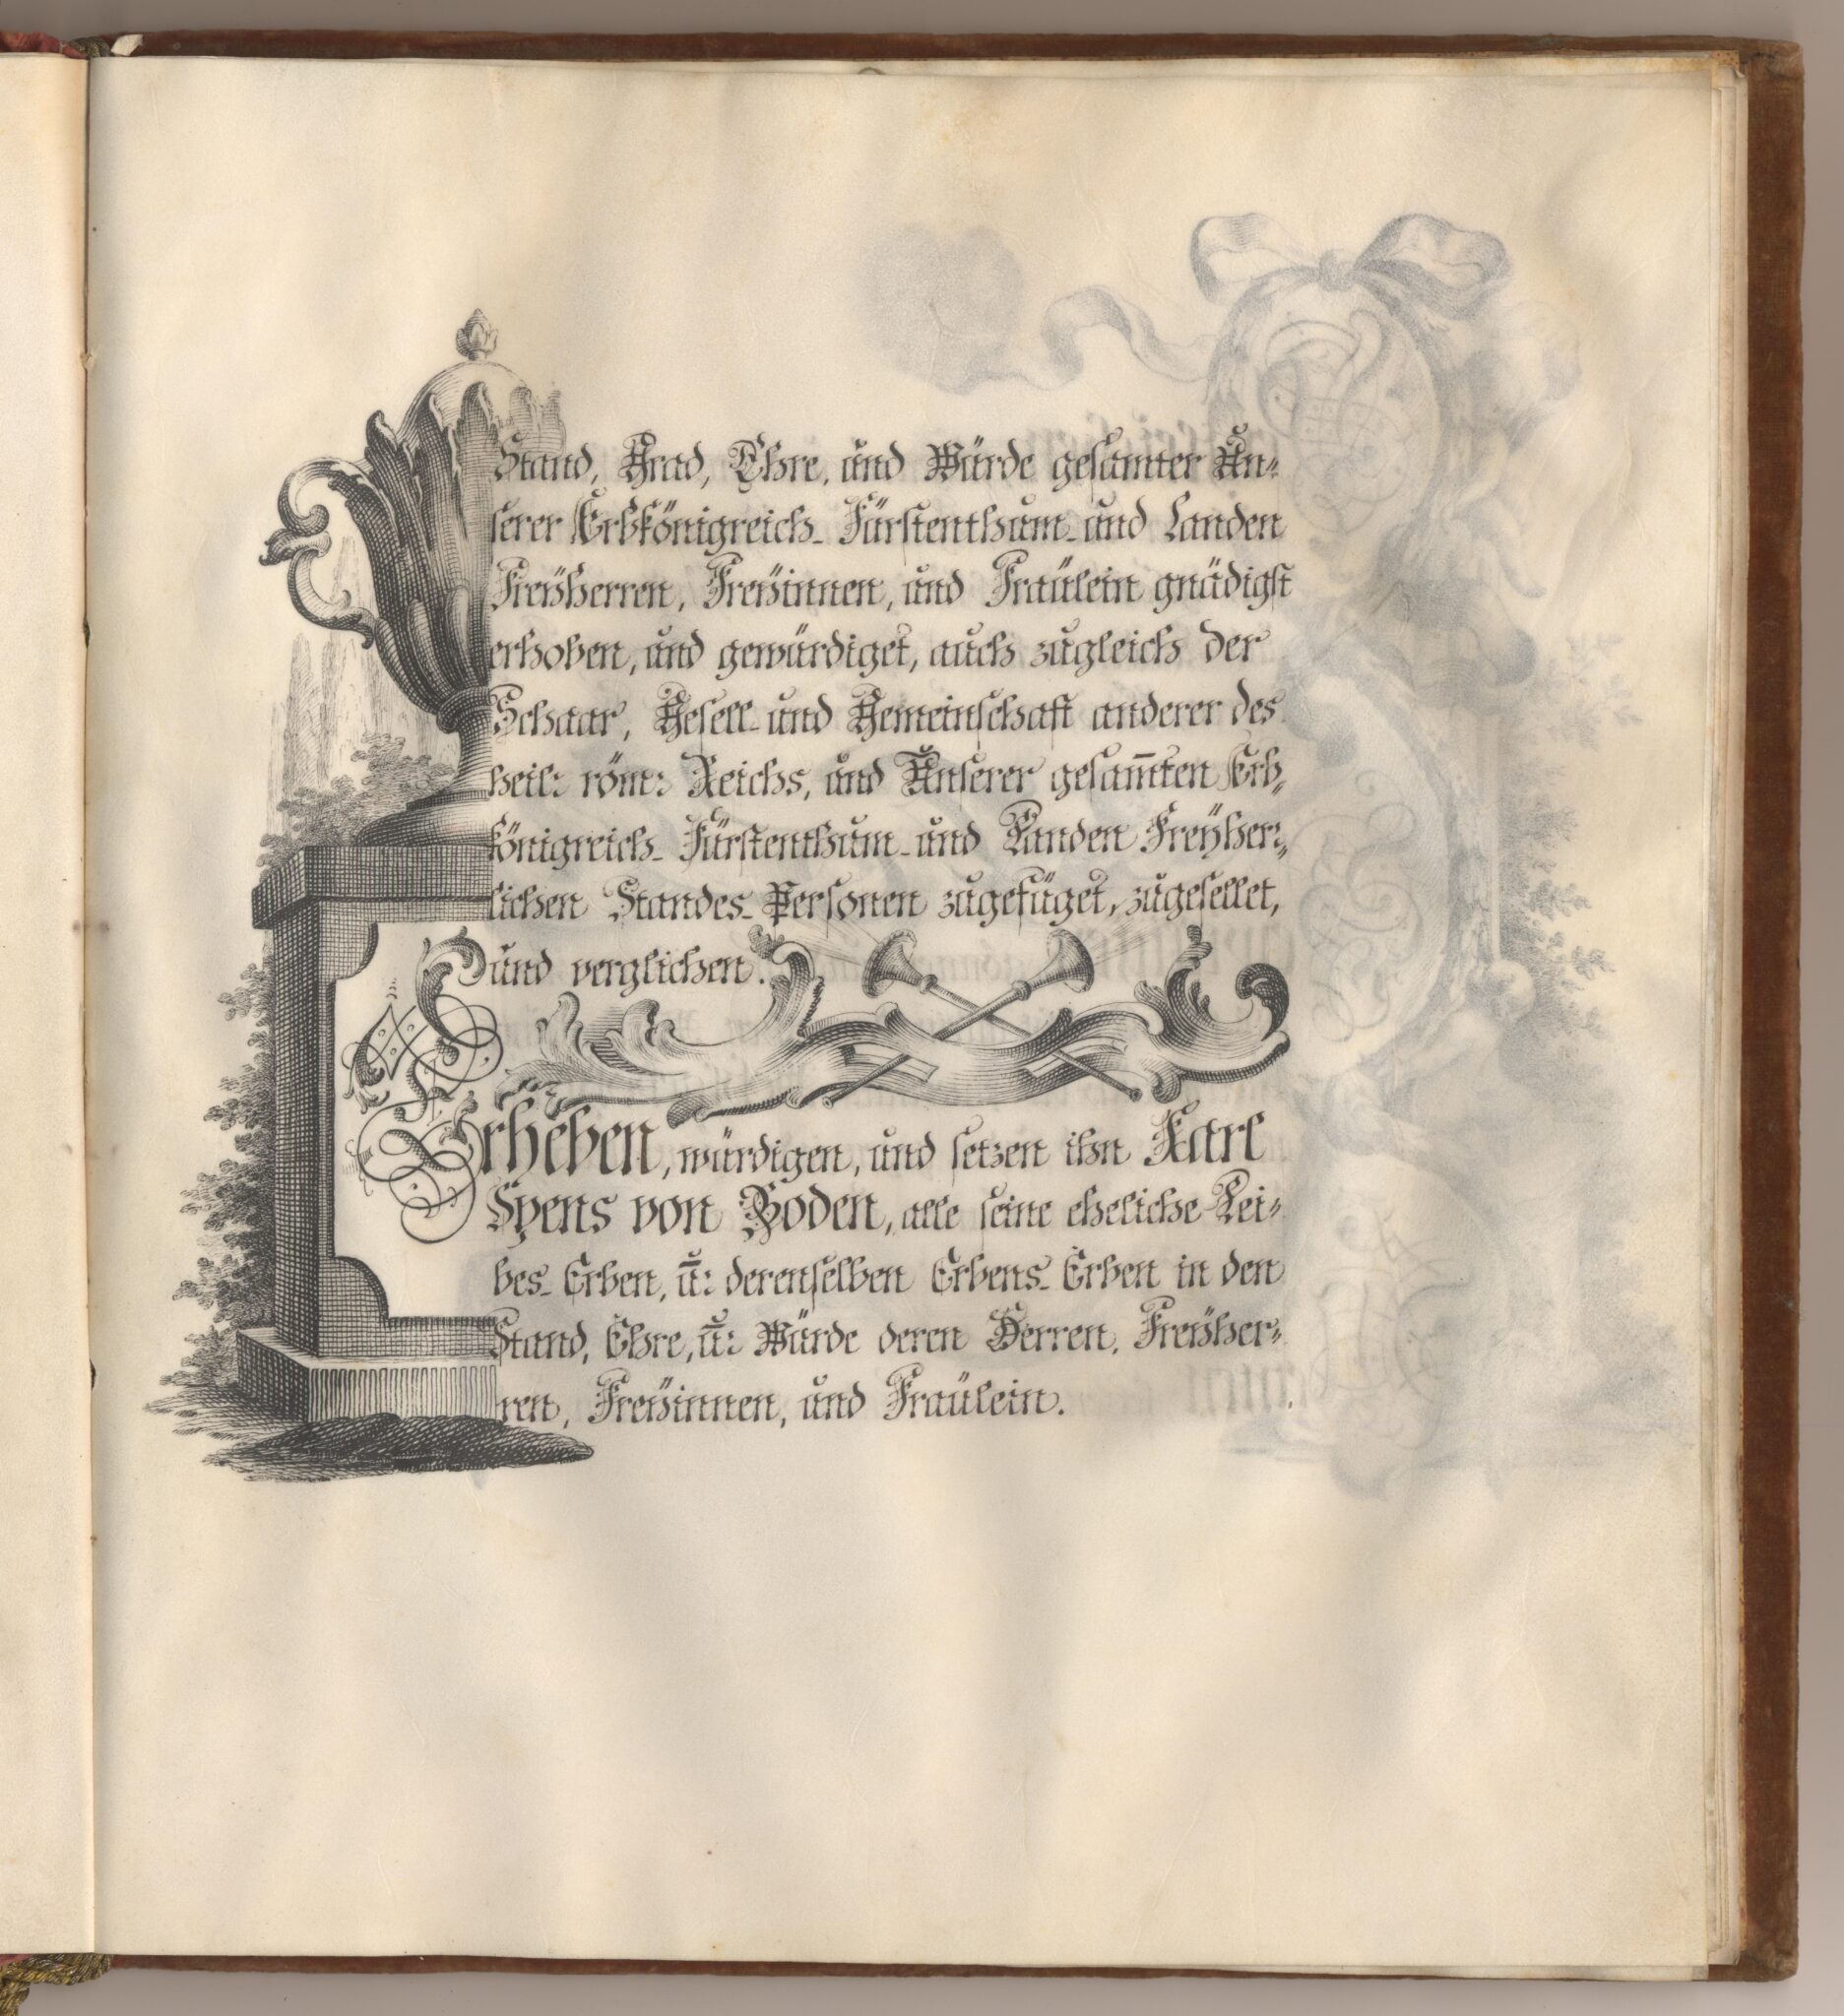 Stand, Grad, Ehre, und Würde gesamter Un=
serer Erbkönigreich- Fürstenthum- und Landen
Freÿherren, Freÿinnen, und Fraülein gnädigst
erhoben, und gewürdiget, auch zugleich der
Schaar, Gesell- und Gemeinschaft anderer des
heil: röm: Reichs, und Unserer gesam̄ten Erb=
königreich- Fürstenthum- und Landen Freÿher=
lichen Standes- Personen zugefüget, zugesellet,
und verglichen.
Erheben, würdigen, und setzen ihn Karl
Spens von Boden, alle seine eheliche Lei=
bes- Erben, ū: derenselben Erbens- Erben in den
Stand, Ehre, ū: Würde deren Herren, Freÿher=
ren, Freÿinnen, und Fraülein.